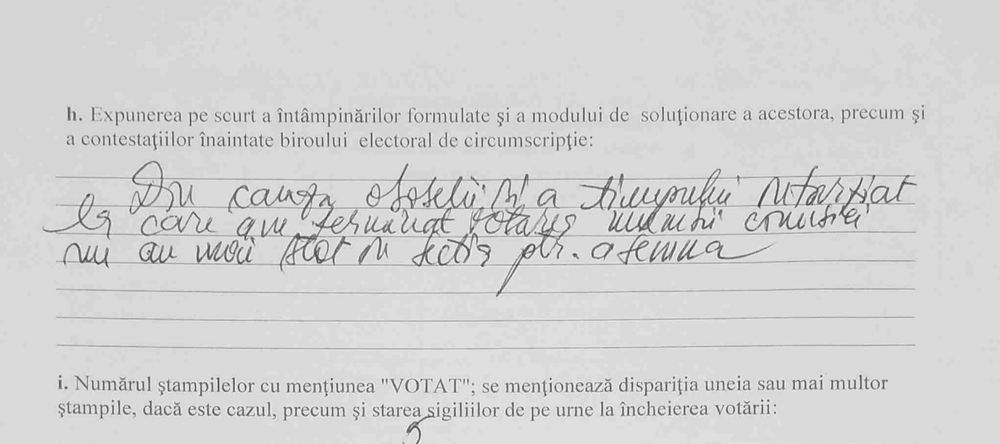 h. Expunerea pe scurt a întâmpinărilor formulate şi a modului de soluţionare a acestora, precum şi
a contestaţiilor înaintate biroului electoral de circumscripţie:
Din cauza oboselii și a timpului întârziat
la care am terminat votarea membrii comisiei
nu au mai stat în secție ptr. a semna
i. Numărul ştampilelor cu menţiunea "VOTAT"; se menţionează dispariţia uneia sau mai multor
ştampile, dacă este cazul, precum şi starea sigiliilor de pe urne la încheierea votării: